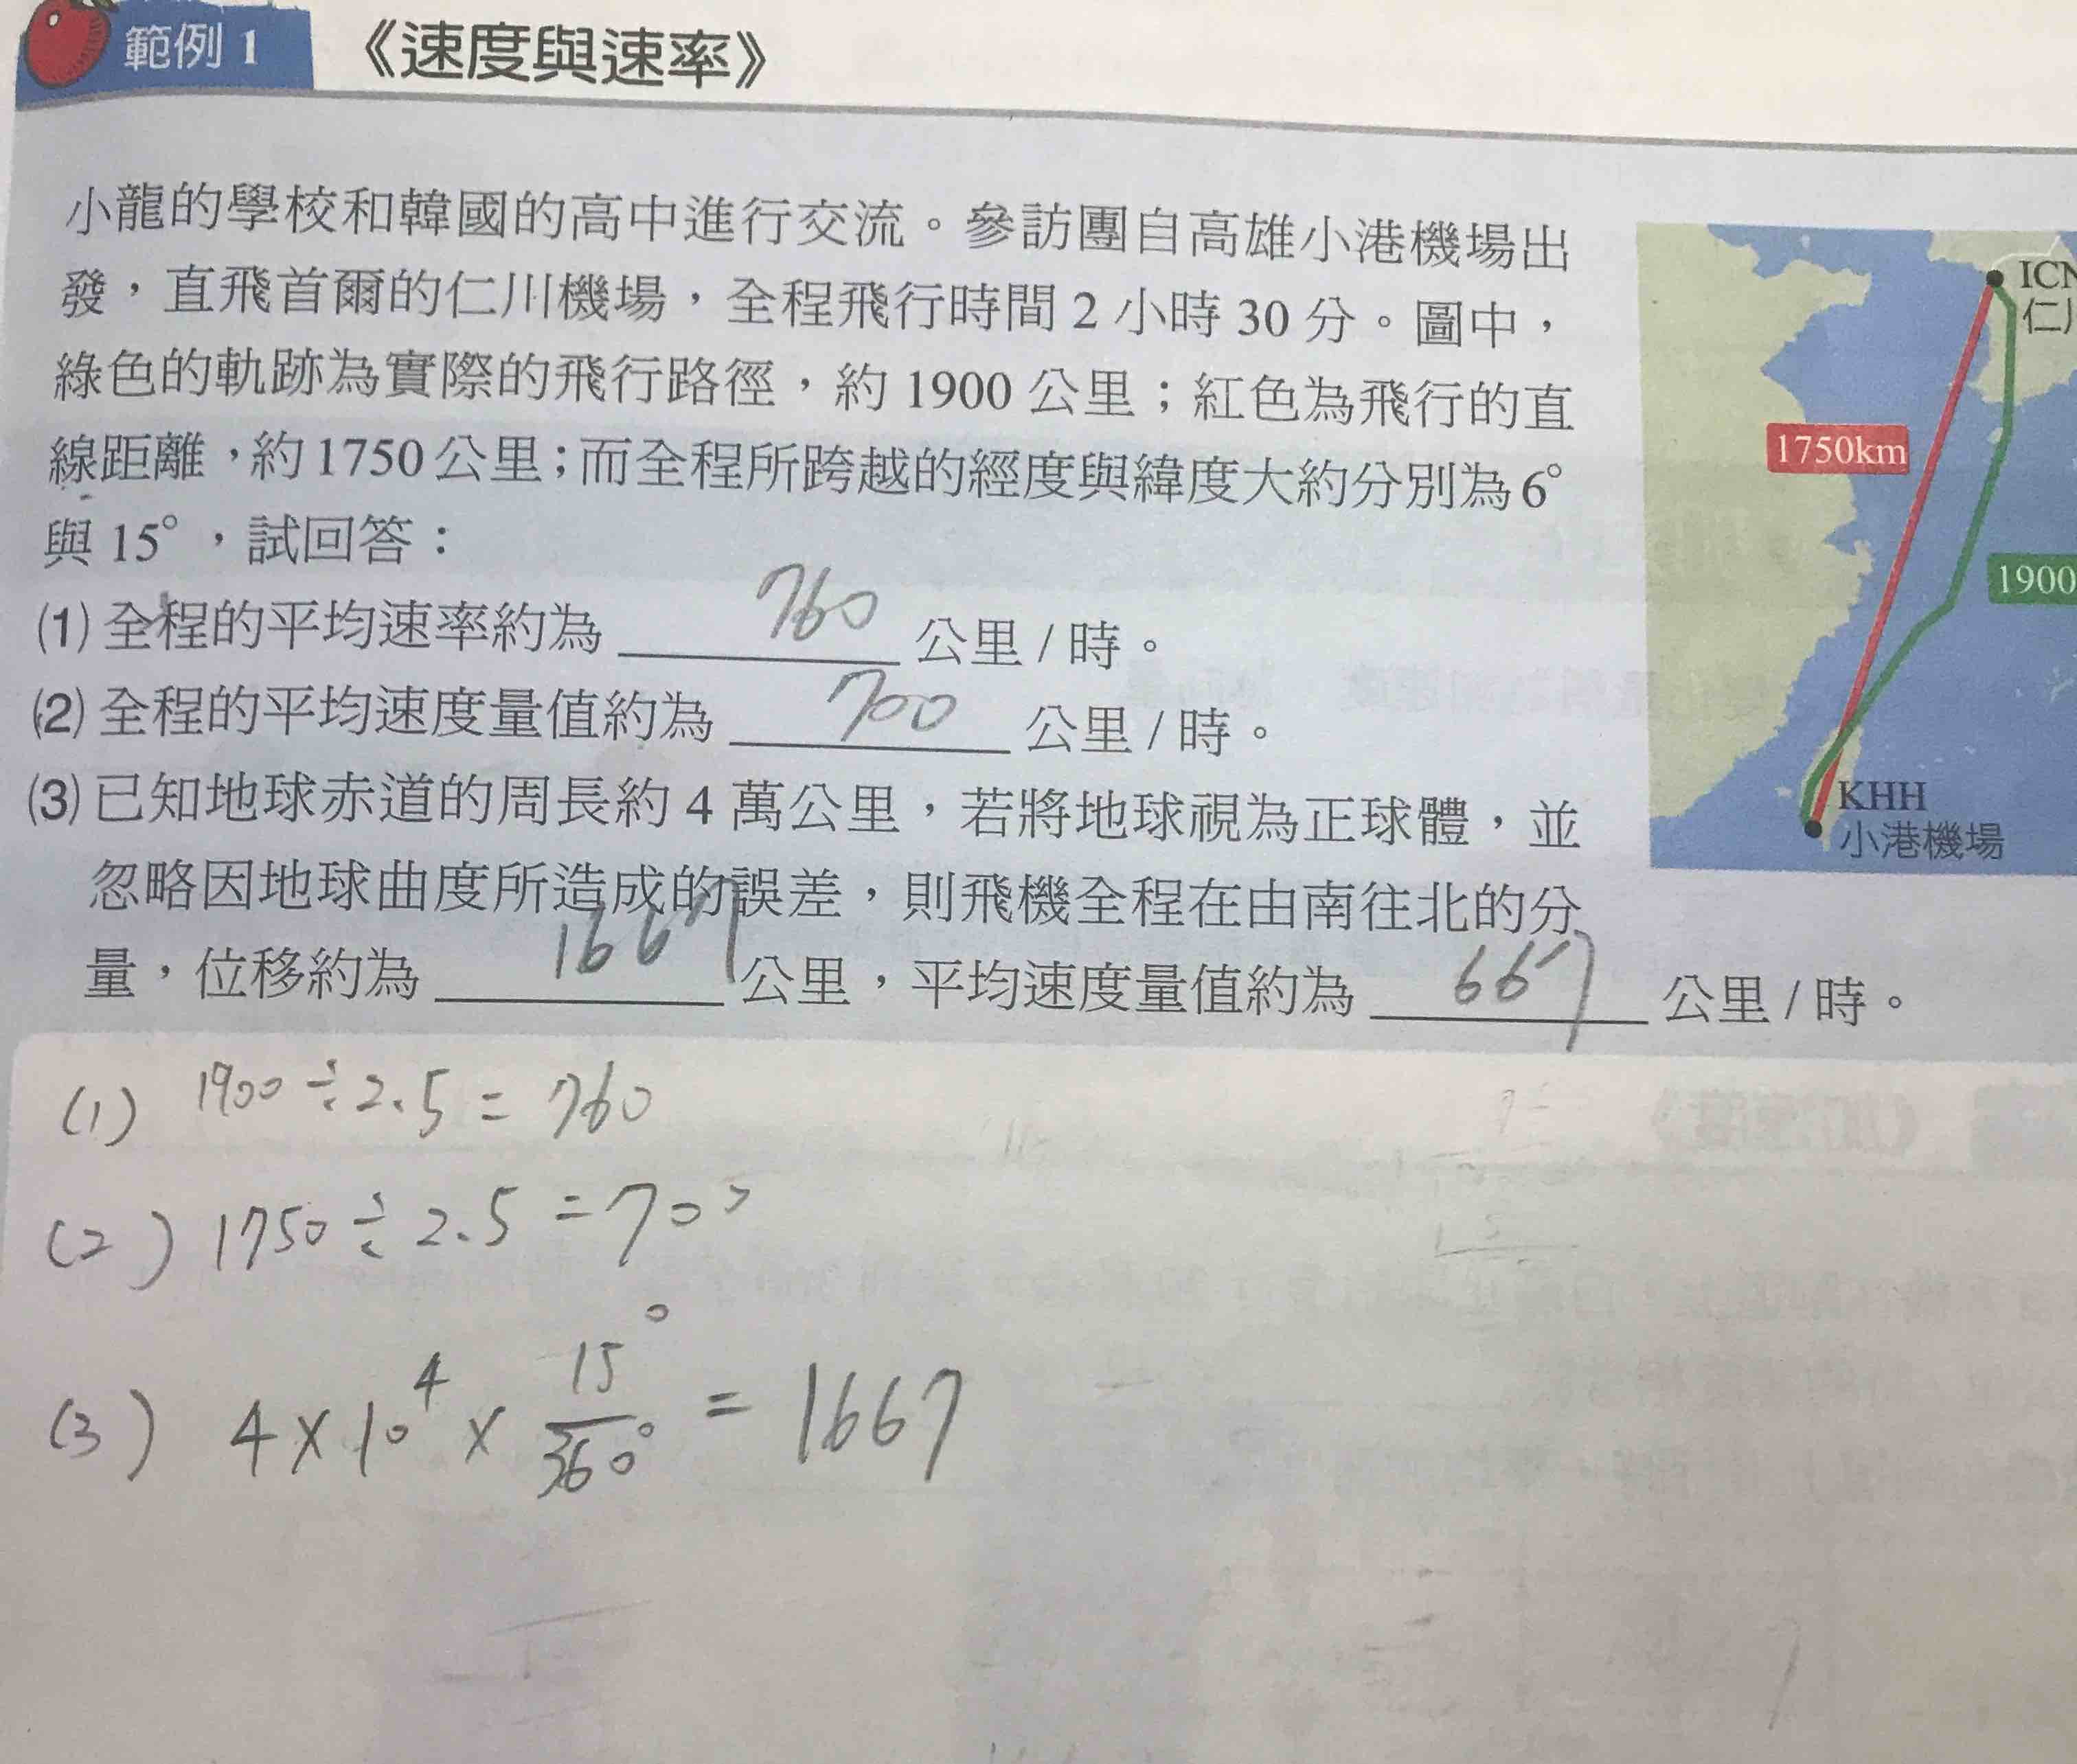 範例 1 《速度與速率》
小龍的學校和韓國的高中進行交流。參訪團自高雄小港機場出
發,直飛首爾的仁川機場,全程飛行時間 2 小時 30 分。圖中,
綠色的軌跡為實際的飛行路徑,約 1900 公里;紅色為飛行的直
線距離,約 1750 公里;而全程所跨越的經度與緯度大約分別為 6°
與 15°,試回答:
(1) 全程的平均速率約為 760 公里 / 時。
(2) 全程的平均速度量值約為 700 公里 / 時。
(3) 已知地球赤道的周長約 4 萬公里,若將地球視為正球體,並
忽略因地球曲度所造成的誤差,則飛機全程在由南往北的分
量,位移約為 1667 公里,平均速度量值約為 667 公里 / 時。
ICN
仁川
1750km
1900
KHH
小港機場
(1) 1900 ÷ 2.5 = 760
(2) 1750 ÷ 2.5 = 700
(3) 4 × 10⁴ × 15°/360° = 1667